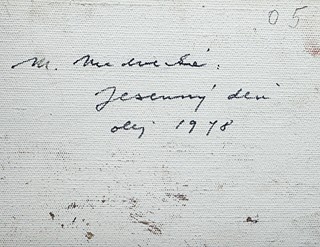 05
M. Medvecká.
Jesenný deň
olej 1978